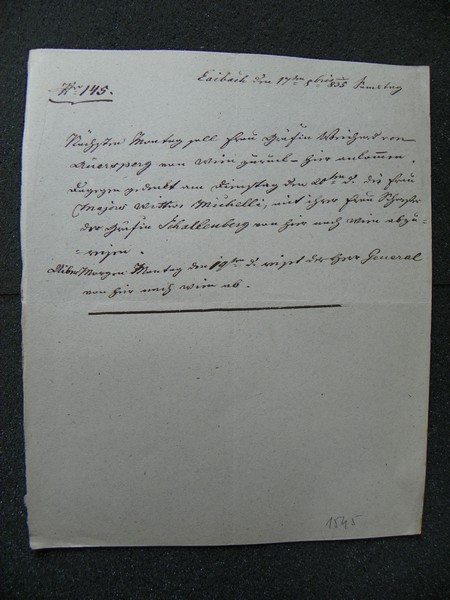 No 145.
Laibach den 17ten 8bris 835 Samstag
Nächsten Montag soll Frau Gräfin Weichard von
Auersperg von Wien zurück hier ankommen.
Dagegen gedenkt am Dienstag den 20ten d. die Frau
Majors Wittwe Michelli, mit ihrer Frau Schwester
der Gräfin Schallenberg von hier nach Wien abzu-
-reisen.
Über Morgen Montag den 19ten d. reiset der Herr General
von hier nach Wien ab.
1545